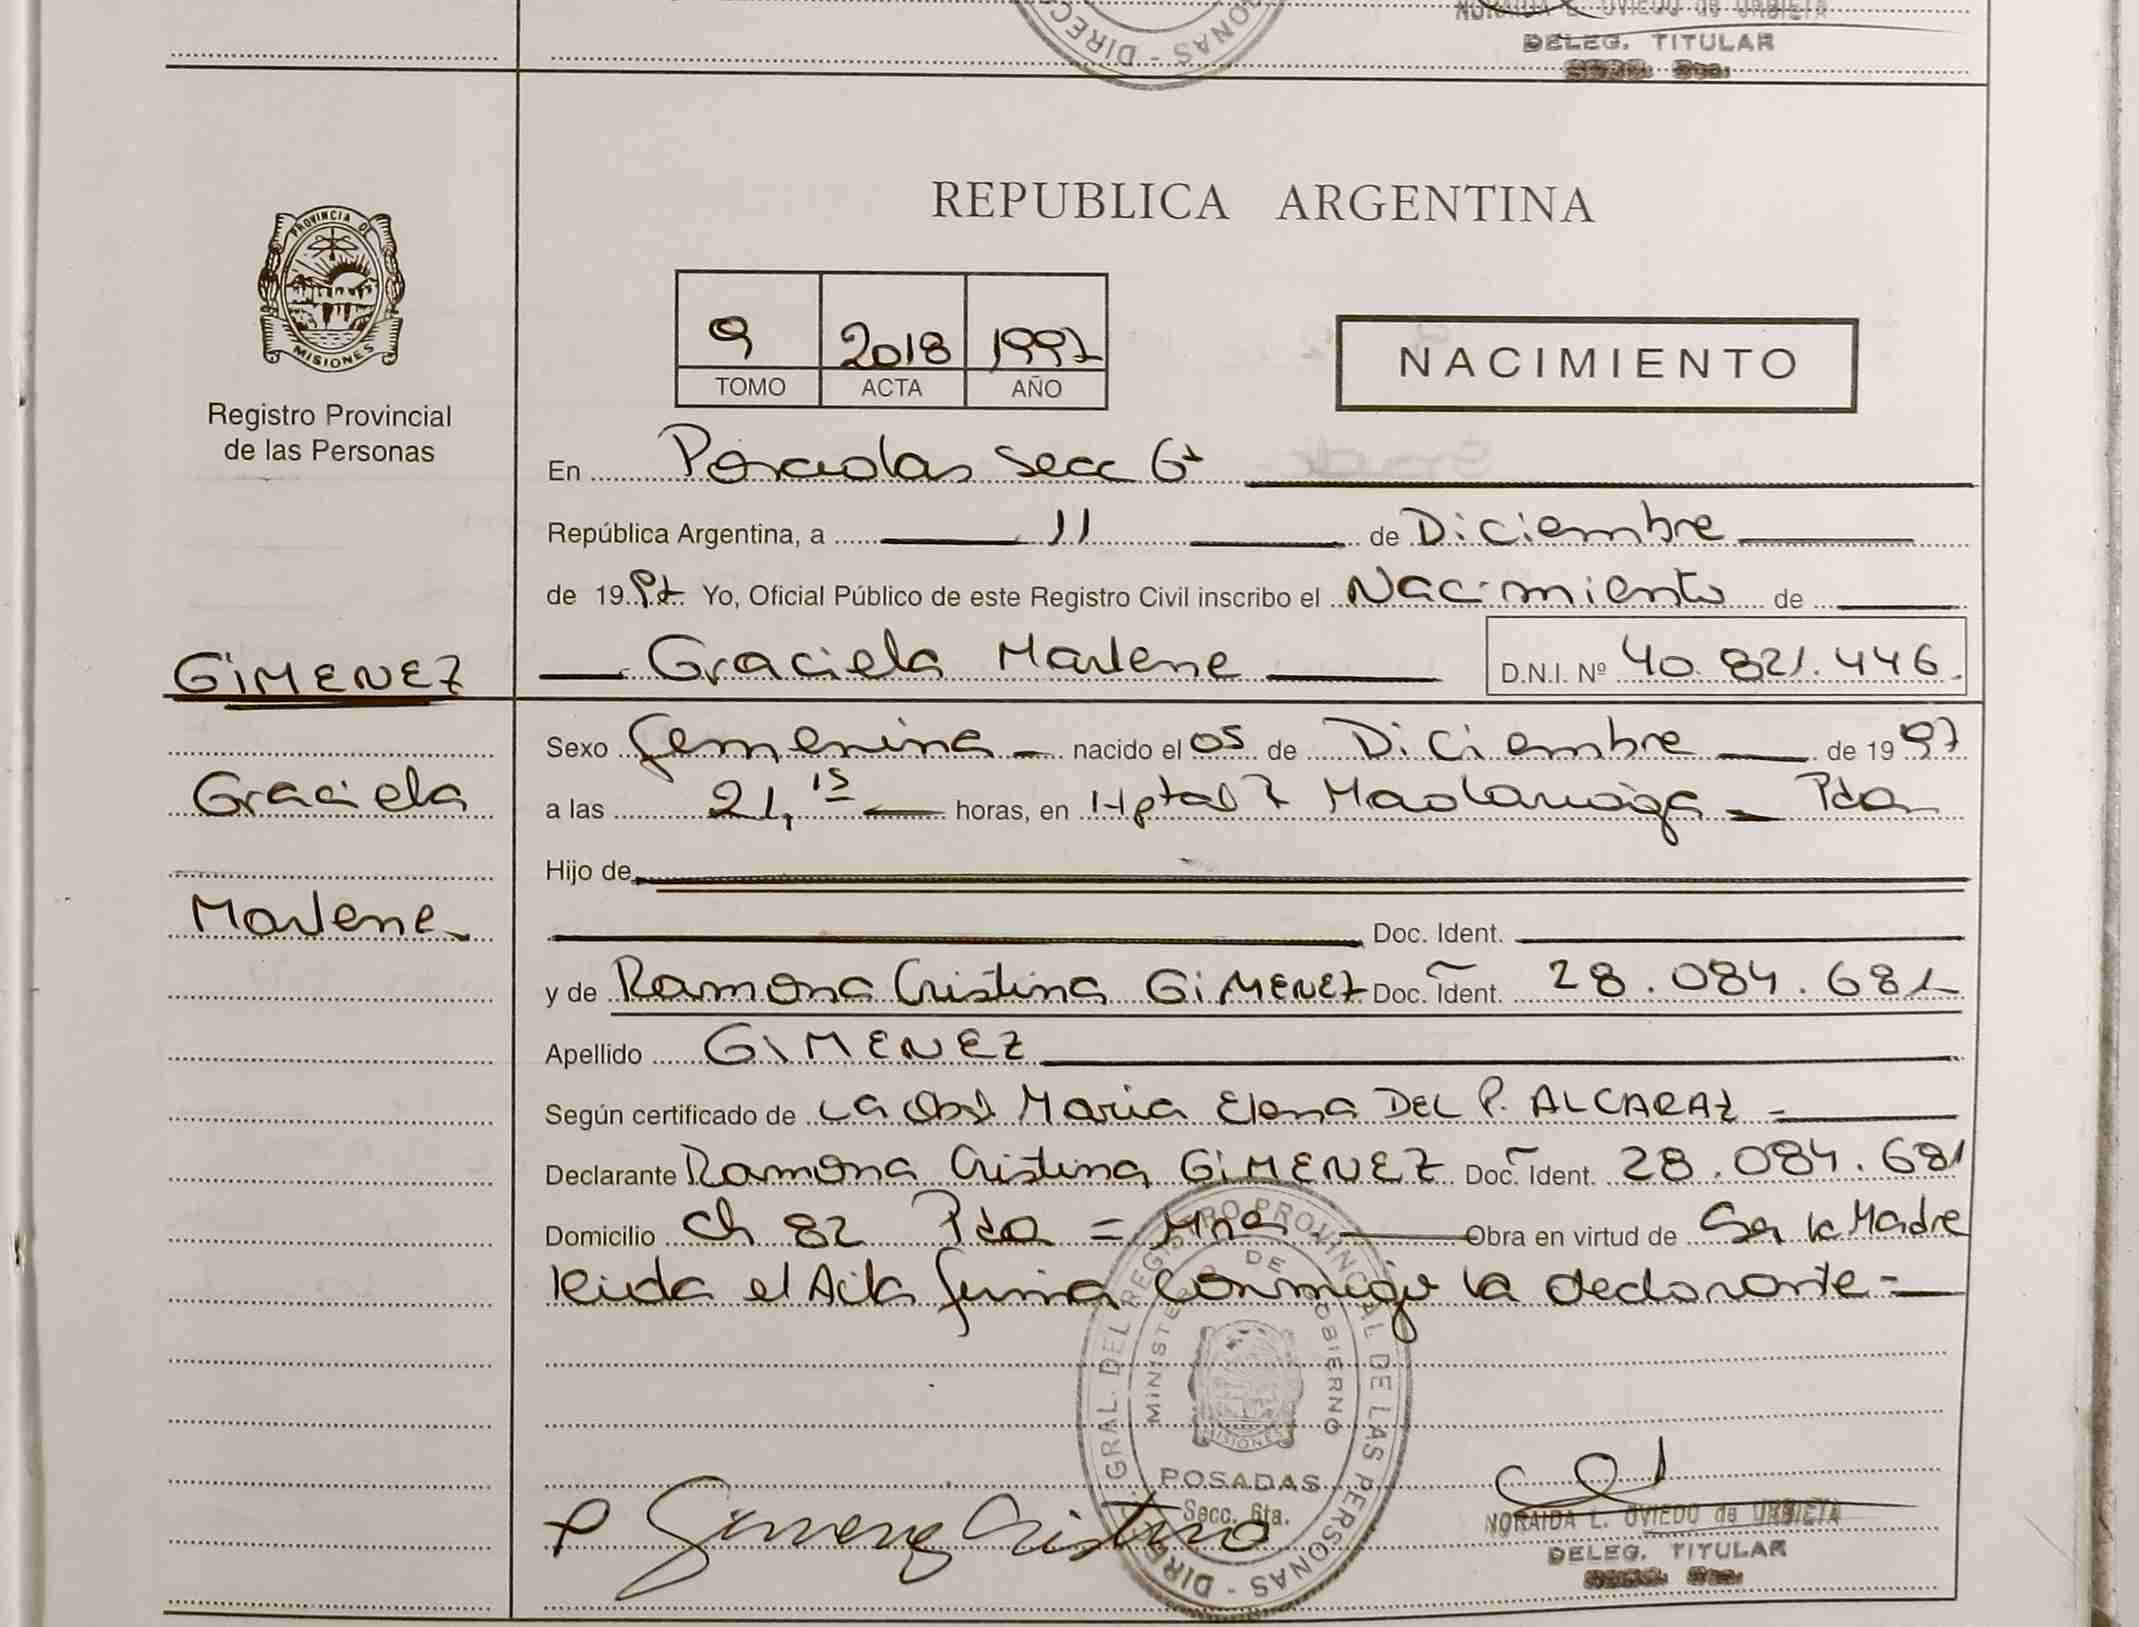 NORAIDA L. OVIEDO de URBIETA
DELEG. TITULAR
DIREC
ONAS
PROVINCIA DE
MISIONES
Registro Provincial
de las Personas
GIMENEZ
Graciela
Marlene
REPUBLICA ARGENTINA
9 2018 1997
TOMO ACTA AÑO
NACIMIENTO
En Posadas Secc 6ª
República Argentina, a 11 de Diciembre
de 1997 Yo, Oficial Público de este Registro Civil inscribo el Nacimiento de
Graciela Marlene D.N.I. Nº 40.821.446.
Sexo femenina nacido el 05 de Diciembre de 1997
a las 21,15 horas, en Hptal R Madariaga - Pdas
Hijo de
Doc. Ident.
y de Ramona Cristina GIMENEZ Doc. Ident. 28.084.681
Apellido GIMENEZ
Según certificado de La Obst Maria Elena DEL P. ALCARAZ =
Declarante Ramona Cristina GIMENEZ Doc. Ident. 28.084.681
Domicilio Ch 82 Pdas = Mnes Obra en virtud de Ser la Madre
leida el Acta firma conmigo la declarante =
DIREC. GRAL. DEL REGISTRO PROVINCIAL DE LAS PERSONAS
MINISTERIO DE GOBIERNO
MISIONES
POSADAS
Secc. 6ta.
Gimenez Cristina
NORAIDA L. OVIEDO de URBIETA
DELEG. TITULAR